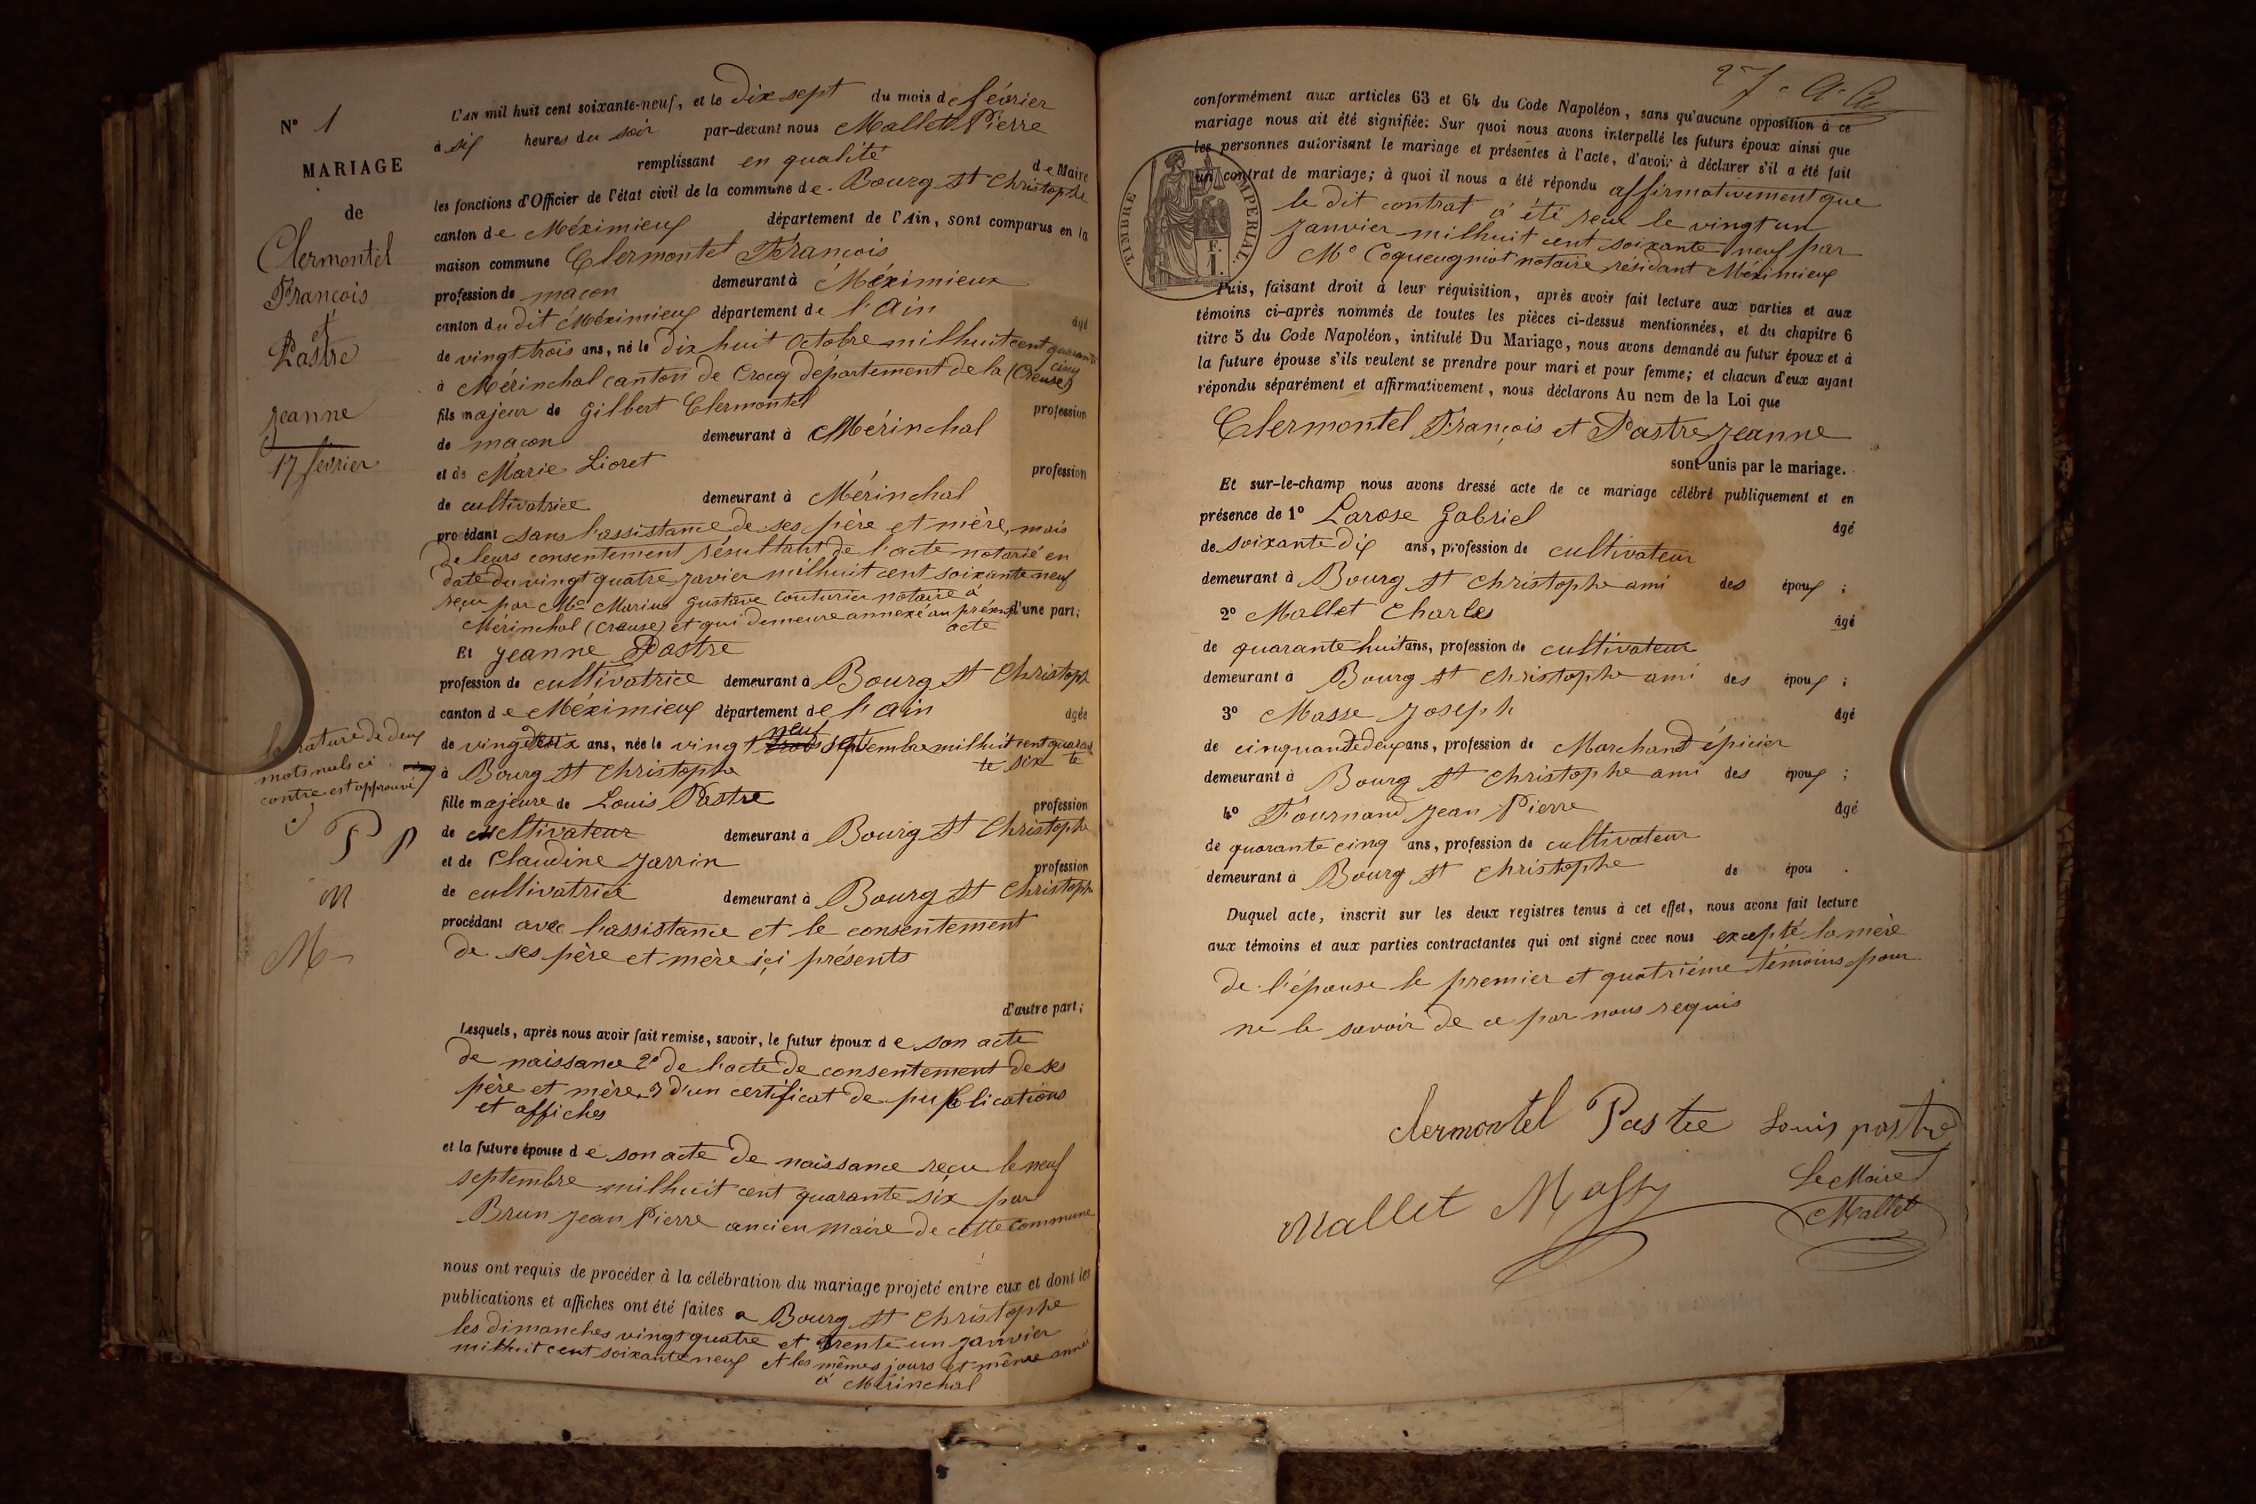 N° 1
MARIAGE
de
Clermontel
François
et
Pastre
Jeanne
17 février
la rature de deux
mots nuls ci
contre est approuvé
P P
M
M
L'AN mil huit cent soixante-neuf, et le dix sept du mois de février
à six heures du soir par-devant nous Mallet Pierre
remplissant en qualité de Maire
les fonctions d'Officier de l'état civil de la commune de Bourg St Christophe
canton de Méximieux département de l'Ain, sont comparus en la
maison commune Clermontel François
profession de maçon demeurant à Méximieux
canton du dit Méximieux département de l'Ain âgé
de vingt trois ans, né le dix huit octobre mil huit cent quarante
cinq
à Mérinchal canton de Crocq département de la (Creuse)
fils majeur de Gilbert Clermontel profession
de maçon demeurant à Mérinchal
et de Marie Lioret profession
de cultivatrice demeurant à Mérinchal
procédant sans l'assistance de ses père et mère, mais
de leurs consentement résultant de l'acte notarié en
date du vingt quatre javier mil huit cent soixante neuf
reçu par Me Marius Gustave Couturier notaire à
Mérinchal (Creuse) et qui demeure annexé au présent d'une part;
acte
Et Jeanne Pastre
profession de cultivatrice demeurant à Bourg St Christophe
canton de Méximieux département de l'Ain âgée
neuf
de vingt deux ans, née le vingt trois septembre mil huit cent quaran
te six te
à Bourg St Christophe
fille majeure de Louis Pastre profession
de cultivateur demeurant à Bourg St Christophe
et de Claudine Jarrin profession
de cultivatrice demeurant à Bourg St Christophe
procédant avec l'assistance et le consentement
de ses père et mère ici présents
d'autre part;
Lesquels, après nous avoir fait remise, savoir, le futur époux de son acte
de naissance 2° de l'acte de consentement de ses
père et mère, 3 d'un certificat de publications
et affiches
et la future épouse de son acte de naissance reçu le neuf
septembre mil huit cent quarante six par
Brun Jean Pierre ancien maire de cette commune
nous ont requis de procéder à la célébration du mariage projeté entre eux et dont les
publications et affiches ont été faites a Bourg St Christophe
les dimanches vingt quatre et trente un janvier
mil huit cent soixante neuf et les mêmes jours et même année
à Mérinchal
conformément aux articles 63 et 64 du Code Napoléon, sans qu'aucune opposition à ce
mariage nous ait été signifiée: Sur quoi nous avons interpellé les futurs époux ainsi que
les personnes autorisant le mariage et présentes à l'acte, d'avoir à déclarer s'il a été fait
un contrat de mariage; à quoi il nous a été répondu affirmativement que
le dit contrat a été reçu le vingt un
janvier mil huit cent soixante neuf par
Me Coqueugniot notaire résidant Méximieux
TIMBRE IMPERIAL
F.
1.
Puis, faisant droit à leur réquisition, après avoir fait lecture aux parties et aux
témoins ci-après nommés de toutes les pièces ci-dessus mentionnées, et du chapitre 6
titre 5 du Code Napoléon, intitulé Du Mariage, nous avons demandé au futur époux et à
la future épouse s'ils veulent se prendre pour mari et pour femme; et chacun d'eux ayant
répondu séparément et affirmativement, nous déclarons Au nom de la Loi que
Clermontel François et Pastre Jeanne
sont unis par le mariage.
Et sur-le-champ nous avons dressé acte de ce mariage célébré publiquement et en
présence de 1° Larose Gabriel âgé
de soixante dix ans, profession de cultivateur
demeurant à Bourg St Christophe ami des époux ;
2° Mallet Charles âgé
de quarante huit ans, profession de cultivateur
demeurant à Bourg St Christophe ami des époux ;
3° Masse Joseph âgé
de cinquante deux ans, profession de Marchand épicier
demeurant à Bourg St Christophe ami des époux ;
4° Fournand Jean Pierre âgé
de quarante cinq ans, profession de cultivateur
demeurant à Bourg St Christophe de épou .
Duquel acte, inscrit sur les deux registres tenus à cet effet, nous avons fait lecture
aux témoins et aux parties contractantes qui ont signé avec nous excepté la mère
de l'épouse le premier et quatrième témoins pour
ne le savoir de ce par nous requis
Clermontel Pastre Louis pastre
Mallet Massy Le Maire
Mallet